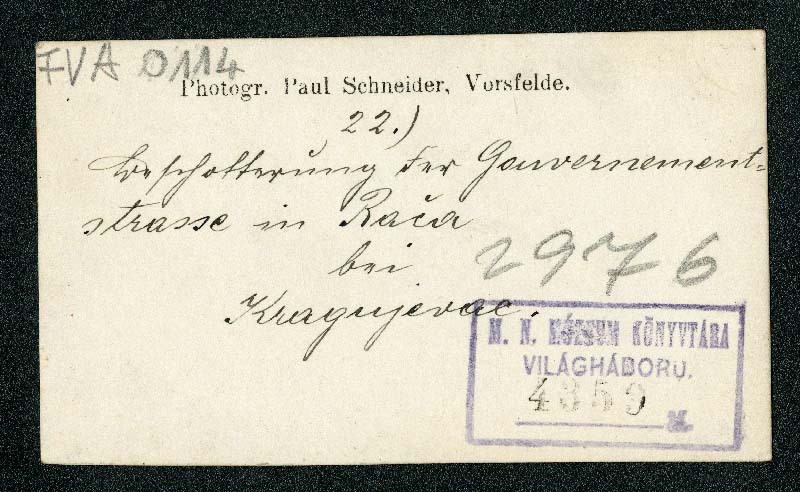 FVA 0114
Photogr. Paul Schneider, Vorsfelde.
22.)
Beschotterung der Gouvernement-
strasse in Rača
bei
Kragujevac.
2976
M. N. MÚZEUM KÖNYVTÁRA
VILÁGHÁBORU.
4359